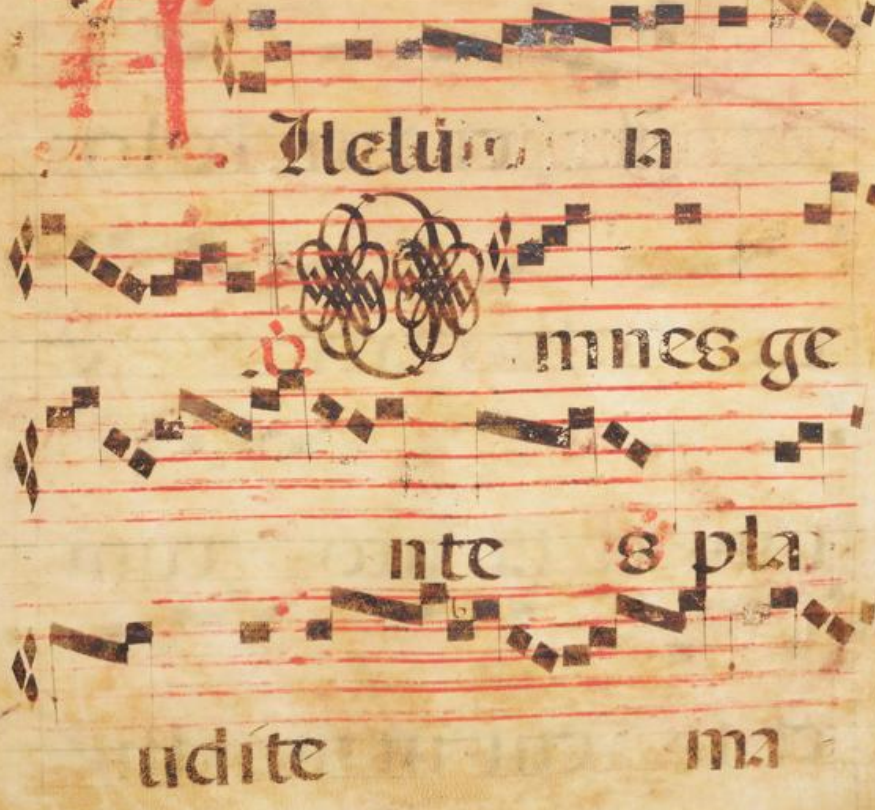 Alleluia
Omnes ge
ntes pla
udite ma